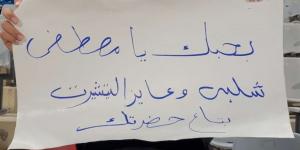 بحبك يا مصطفى
شلبى وعايز التيشرت
بتاع حضرتك